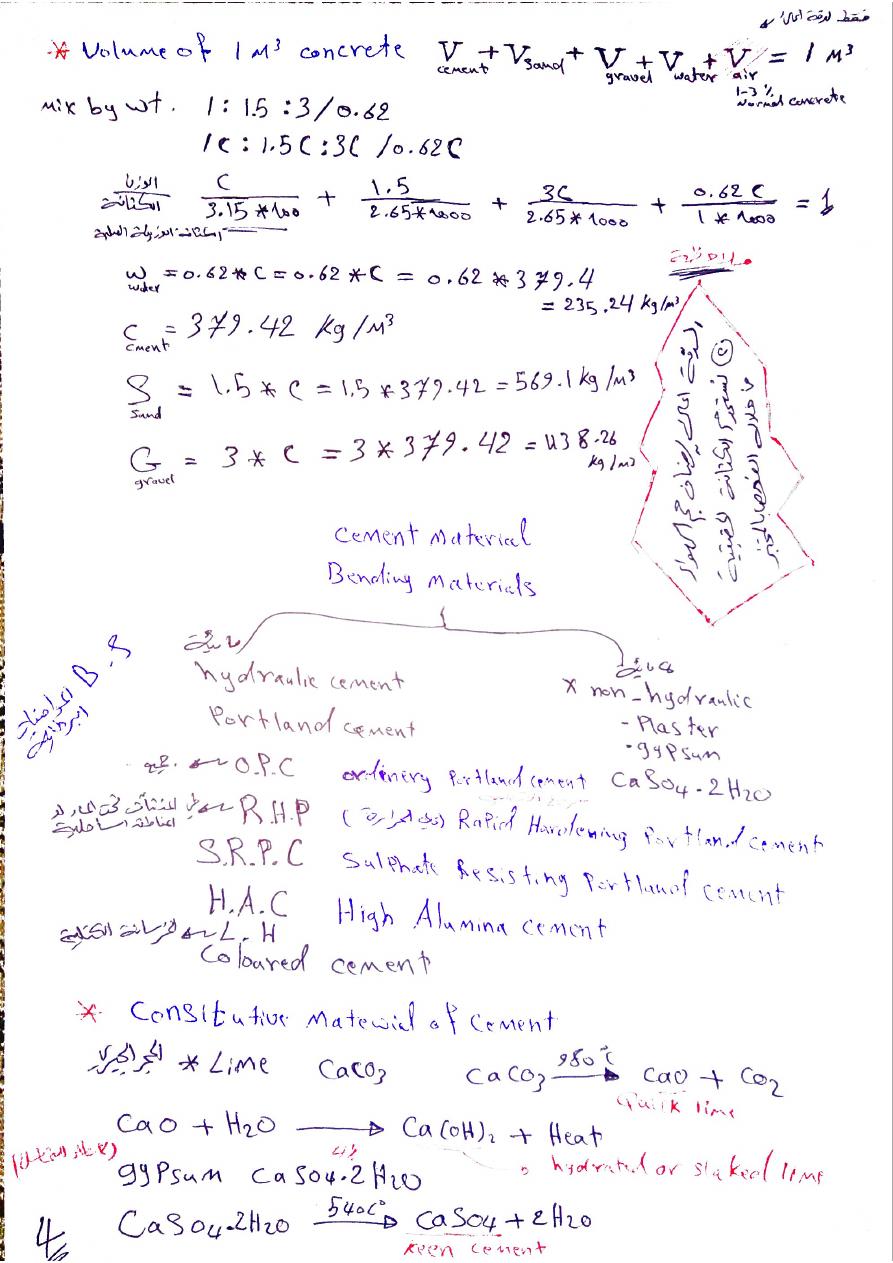 فقط لدقة اعلى
* Volume of 1 M³ concrete V cement + V sand + V gravel + V water + V air = 1 M³
1-3 % Normal concrete
Mix by wt. 1 : 1.5 : 3 / 0.62
1C : 1.5C : 3C / 0.62C
الوزن / الكثافة C / 3.15*1000 + 1.5 / 2.65*1000 + 3C / 2.65*1000 + 0.62 C / 1*1000 = 1
W water = 0.62*C = 0.62*C = 0.62*379.4
= 235.24 kg/M³
C cment = 379.42 kg/M³
S sand = 1.5*C = 1.5*379.42 = 569.1 kg/M³
G gravel = 3*C = 3*379.42 = 1138.26 kg/M³
Cement Material
Bending Materials
مائية
hydraulic cement
Portland cement
x non-hydraulic
- Plaster
- gypsum
CaSO4.2H2O
B.S
O.P.C ordinery Portland cement
R.H.P Rapid Hardening Portland cement
S.R.P.C Sulphate Resisting Portland cement
H.A.C High Alumina cement
L.H
Coloured cement
* Consitutive Material of Cement
الحجر الجيري * Lime CaCO3 CaCO3 980°C → CaO + CO2
Quick lime
CaO + H2O → Ca(OH)2 + Heat
hydrated or slaked lime
gypsum CaSO4.2H2O
CaSO4.2H2O 540C° → CaSO4 + 2H2O
keen cement
4